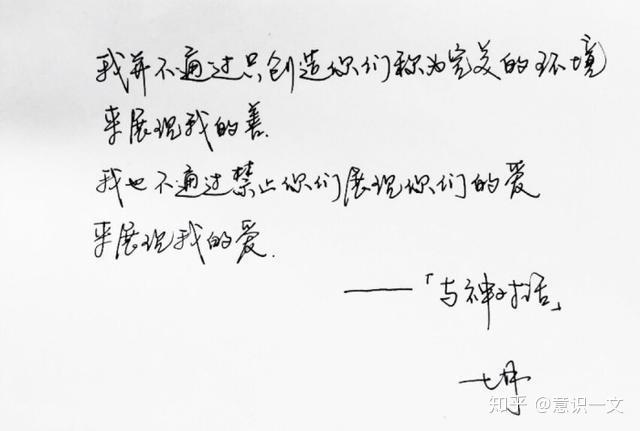 我并不通过只创造你们称为完美的环境
来展现我的善.
我也不通过禁止你们展现你们的爱
来展现我的爱.
——「与神对话」
知乎 @意识一文